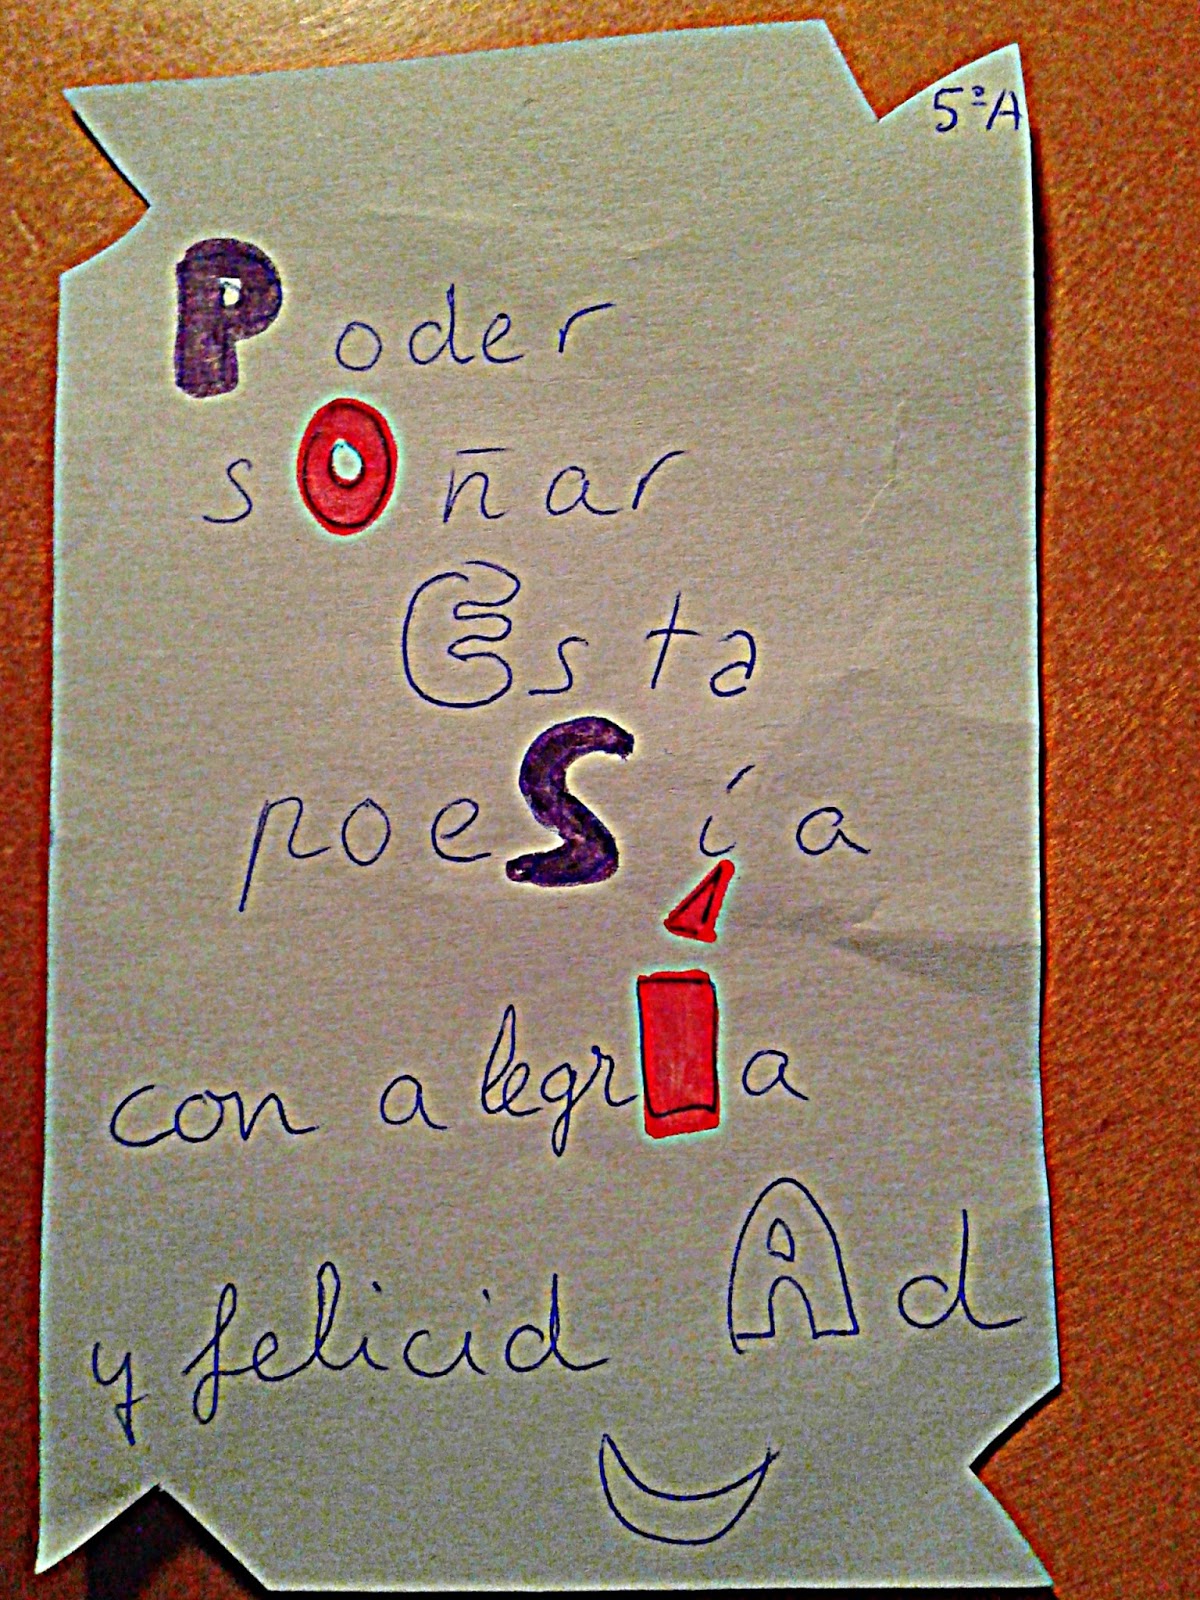 5ºA
Poder
sOñar
Esta
poeSía
con alegrÍa
y felicidAd